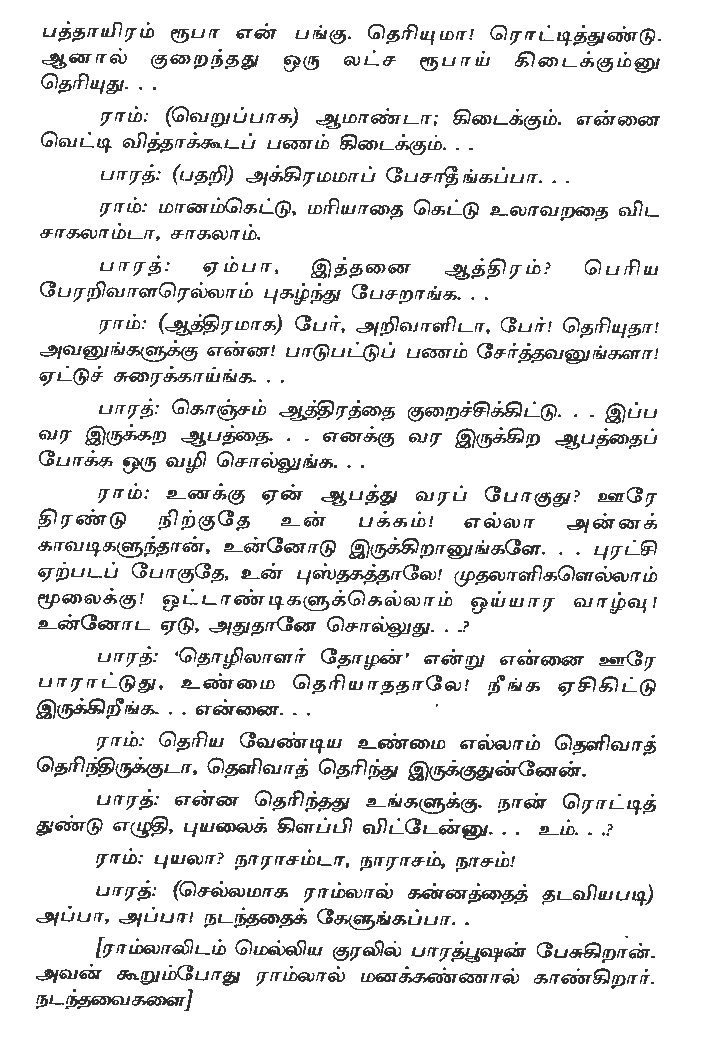 பத்தாயிரம் ரூபா என் பங்கு. தெரியுமா! ரொட்டித்துண்டு.
ஆனால் குறைந்தது ஒரு லட்ச ரூபாய் கிடைக்கும்னு
தெரியுது. . .
ராம்: (வெறுப்பாக) ஆமாண்டா; கிடைக்கும். என்னை
வெட்டி வித்தாக்கூடப் பணம் கிடைக்கும். . .
பாரத்: (பதறி) அக்கிரமமாப் பேசாதீங்கப்பா. . .
ராம்: மானம்கெட்டு, மரியாதை கெட்டு உலாவறதை விட
சாகலாம்டா, சாகலாம்.
பாரத்: ஏம்பா, இத்தனை ஆத்திரம்? பெரிய
பேரறிவாளரெல்லாம் புகழ்ந்து பேசறாங்க. . .
ராம்: (ஆத்திரமாக) பேர், அறிவாளிடா, பேர்! தெரியுதா!
அவனுங்களுக்கு என்ன! பாடுபட்டுப் பணம் சேர்த்தவனுங்களா!
ஏட்டுச் சுரைக்காய்ங்க. . .
பாரத்: கொஞ்சம் ஆத்திரத்தை குறைச்சிக்கிட்டு. . . இப்ப
வர இருக்கற ஆபத்தை. . . எனக்கு வர இருக்கிற ஆபத்தைப்
போக்க ஒரு வழி சொல்லுங்க. . .
ராம்: உனக்கு ஏன் ஆபத்து வரப் போகுது? ஊரே
திரண்டு நிற்குதே உன் பக்கம்! எல்லா அன்னக்
காவடிகளுந்தான், உன்னோடு இருக்கிறானுங்களே. . . புரட்சி
ஏற்படப் போகுதே, உன் புஸ்தகத்தாலே! முதலாளிகளெல்லாம்
மூலைக்கு! ஒட்டாண்டிகளுக்கெல்லாம் ஒய்யார வாழ்வு!
உன்னோட ஏடு, அதுதானே சொல்லுது. . .?
பாரத்: ‘தொழிலாளர் தோழன்’ என்று என்னை ஊரே
பாராட்டுது, உண்மை தெரியாததாலே! நீங்க ஏசிகிட்டு
இருக்கிறீங்க. . . என்னை. . .
ராம்: தெரிய வேண்டிய உண்மை எல்லாம் தெளிவாத்
தெரிந்திருக்குடா, தெளிவாத் தெரிந்து இருக்குதுன்னேன்.
பாரத்: என்ன தெரிந்தது உங்களுக்கு. நான் ரொட்டித்
துண்டு எழுதி, புயலைக் கிளப்பி விட்டேன்னு. . . உம். . .?
ராம்: புயலா? நாராசம்டா, நாராசம், நாசம்!
பாரத்: (செல்லமாக ராம்லால் கன்னத்தைத் தடவியபடி)
அப்பா, அப்பா! நடந்ததைக் கேளுங்கப்பா. .
[ராம்லாலிடம் மெல்லிய குரலில் பாரத்பூஷன் பேசுகிறான்.
அவன் கூறும்போது ராம்லால் மனக்கண்ணால் காண்கிறார்.
நடந்தவைகளை]